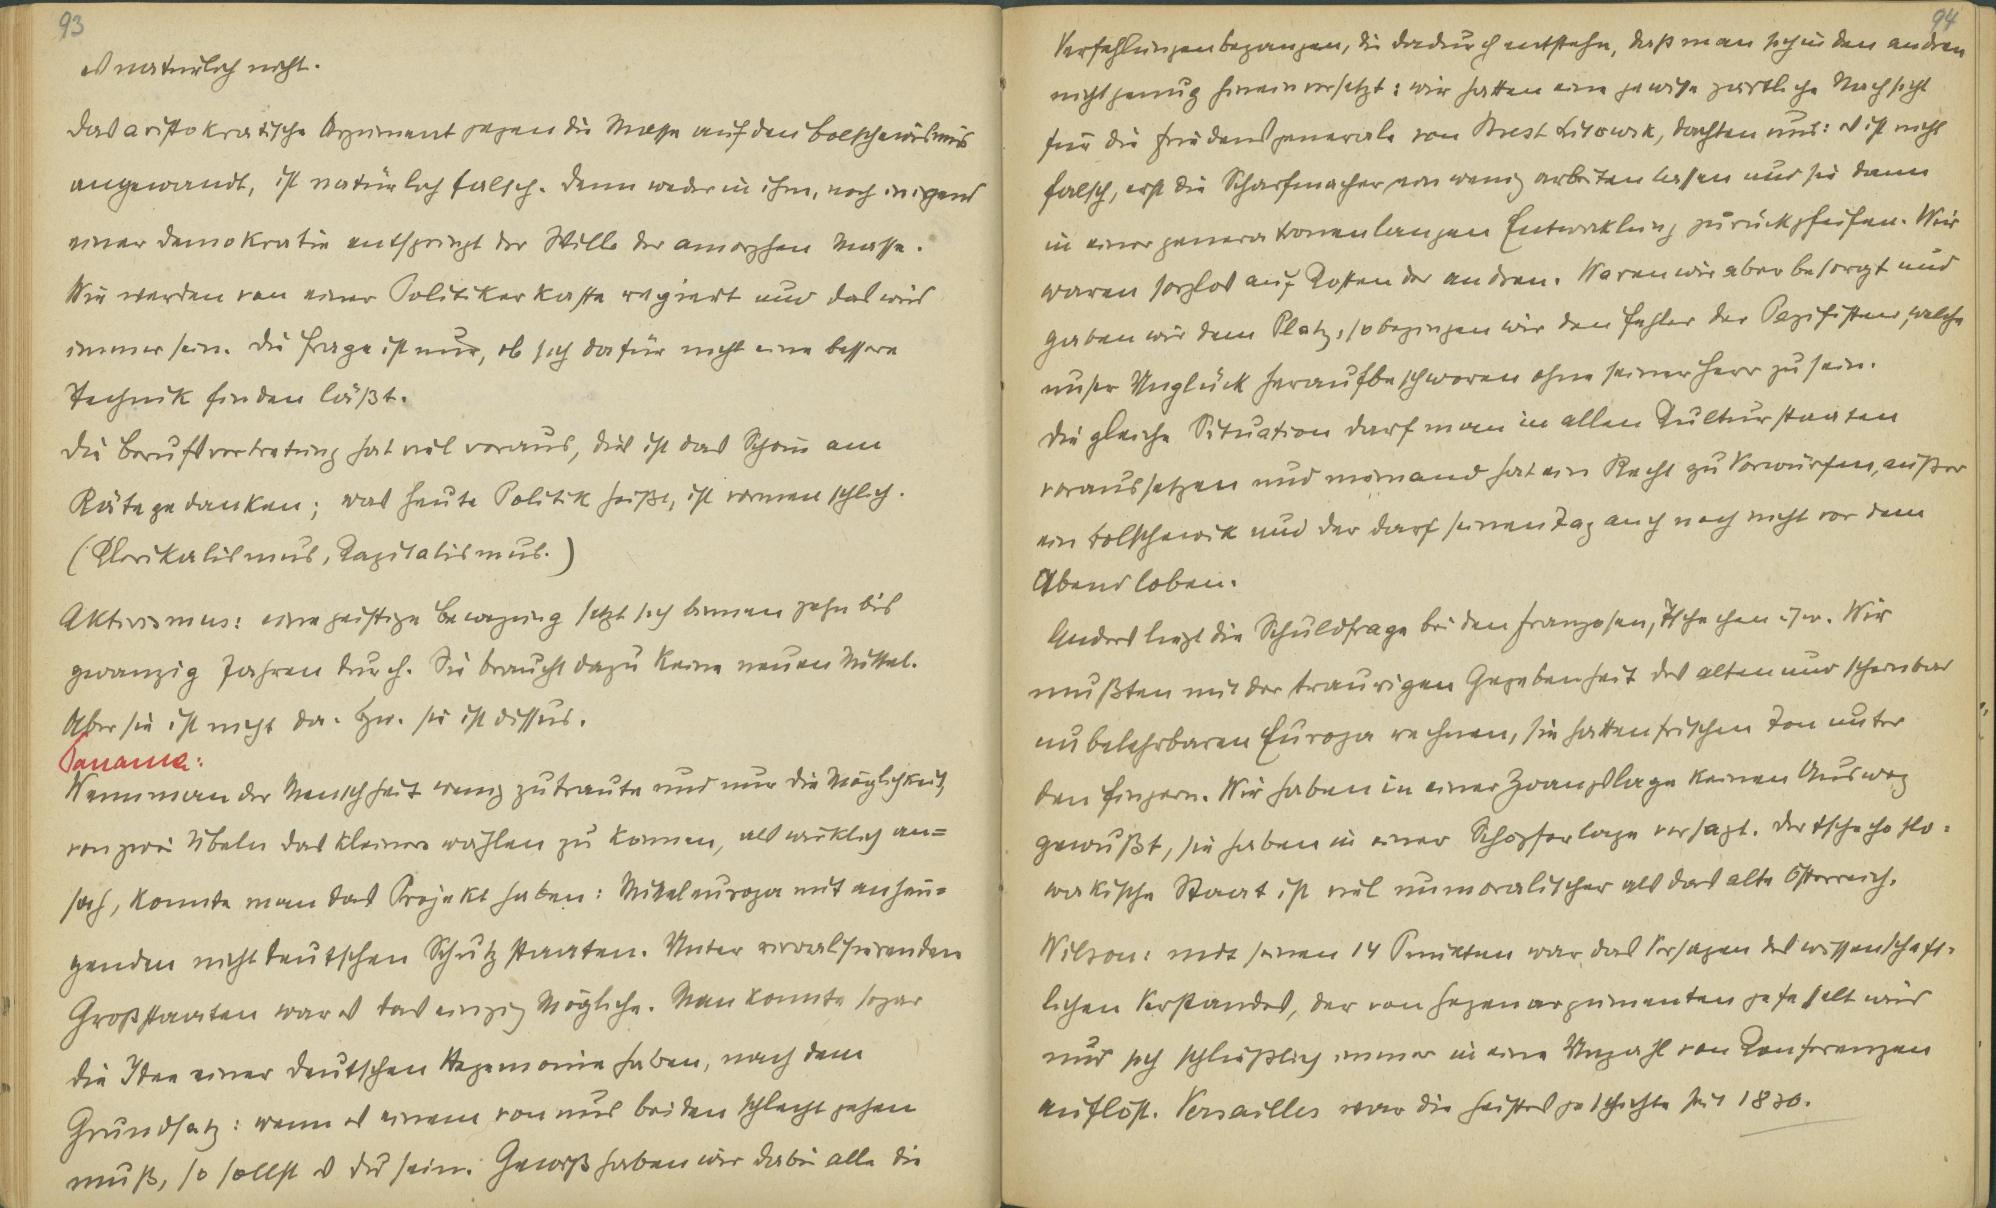 93
es natürlich nicht.
Das aristokratische Argument gegen die Masse auf den Bolschewismus
angewandt, ist natürlich falsch. Denn weder in ihm, noch in irgend
einer Demokratie entspringt der Wille der amorphen Masse.
Wir werden von einer Politikerkaste regiert und das wird
immer sein. Die Frage ist nur, ob sich dafür nicht eine bessere
Technik finden läßt.
Die Berufsvertretung hat viel voraus, dies ist das Schöne am
Rätegedanken; was heute Politik heißt, ist vormenschlich.
(Klerikalismus, Kapitalismus.)
Aktivismus: eine geistige Bewegung setzt sich binnen zehn bis
zwanzig Jahren durch. Sie braucht dazu keine neuen Mittel.
Aber sie ist nicht da. bzw. sie ist diffus.
Panama:
Wenn man der Menschheit wenig zutraute und nur die Möglichkeit,
von zwei Übeln das kleinere wählen zu können, als wirklich an=
sah, konnte man das Projekt haben: Mitteleuropa mit anhän=
genden nichtdeutschen Schutzstaaten. Unter rivalisierenden
Großstaaten war es das einzig Mögliche. Man konnte sogar
die Idee einer deutschen Hegemonie haben, nach dem
Grundsatz: wenn es einem von uns beiden schlecht gehen
muß, so sollst es du sein. Gewiß haben wir dabei alle die
94
Verfehlungen begangen, die dadurch entstehn, daß man sich in den andren
nicht genug hineinversetzt: wir hatten eine gewisse zärtliche Nachsicht
für die Friedensgenerale von Brest Litowsk, dachten uns: es ist nicht
falsch, erst die Scharfmacher ein wenig arbeiten lassen und sie dann
in einer generationenlangen Entwicklung zurückpfeifen. Wir
waren sorglos auf Kosten der andren. Waren wir aber besorgt und
gaben wir dem Platz, so begingen wir den Fehler der Pazifisten, welche
unser Unglück heraufbeschworen ohne seiner Herr zu sein.
Die gleiche Situation darf man in allen Kulturstaaten
voraussetzen und niemand hat ein Recht zu Vorwürfen, außer
ein Bolschewik und der darf seinen Tag auch noch nicht vor dem
Abend loben.
Anders liegt die Schuldfrage bei den Franzosen, Tschechen usw. Wir
mußten mit der traurigen Gegebenheit des alten und scheinbar
unbelehrbaren Europa rechnen, sie hatten frischen Ton unter
den Fingern. Wir haben in einer Zwangslage keinen Ausweg
gewußt, sie haben in einer Schöpferlage versagt. Der tschechoslo-
wakische Staat ist viel unmoralischer als das alte Österreich.
Wilson: mit seinen 14 Punkten war das Versagen des wissenschaft-
lichen Verstandes, der von Gegenargumenten gefesselt wird
und sich schließlich immer in eine Unzahl von Konferenzen
auflöst. Versailles war die Geistesgeschichte seit 1830.